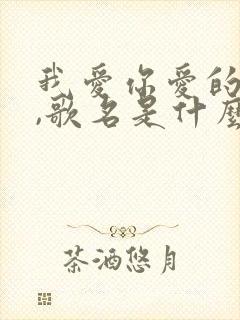 我爱你爱的
,歌名是什麼
茶酒悠月